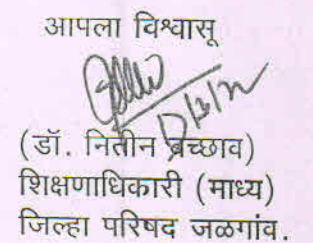 आपला विश्वासू
(डॉ. नितीन बच्छाव)
शिक्षणाधिकारी (माध्य)
जिल्हा परिषद जळगांव.